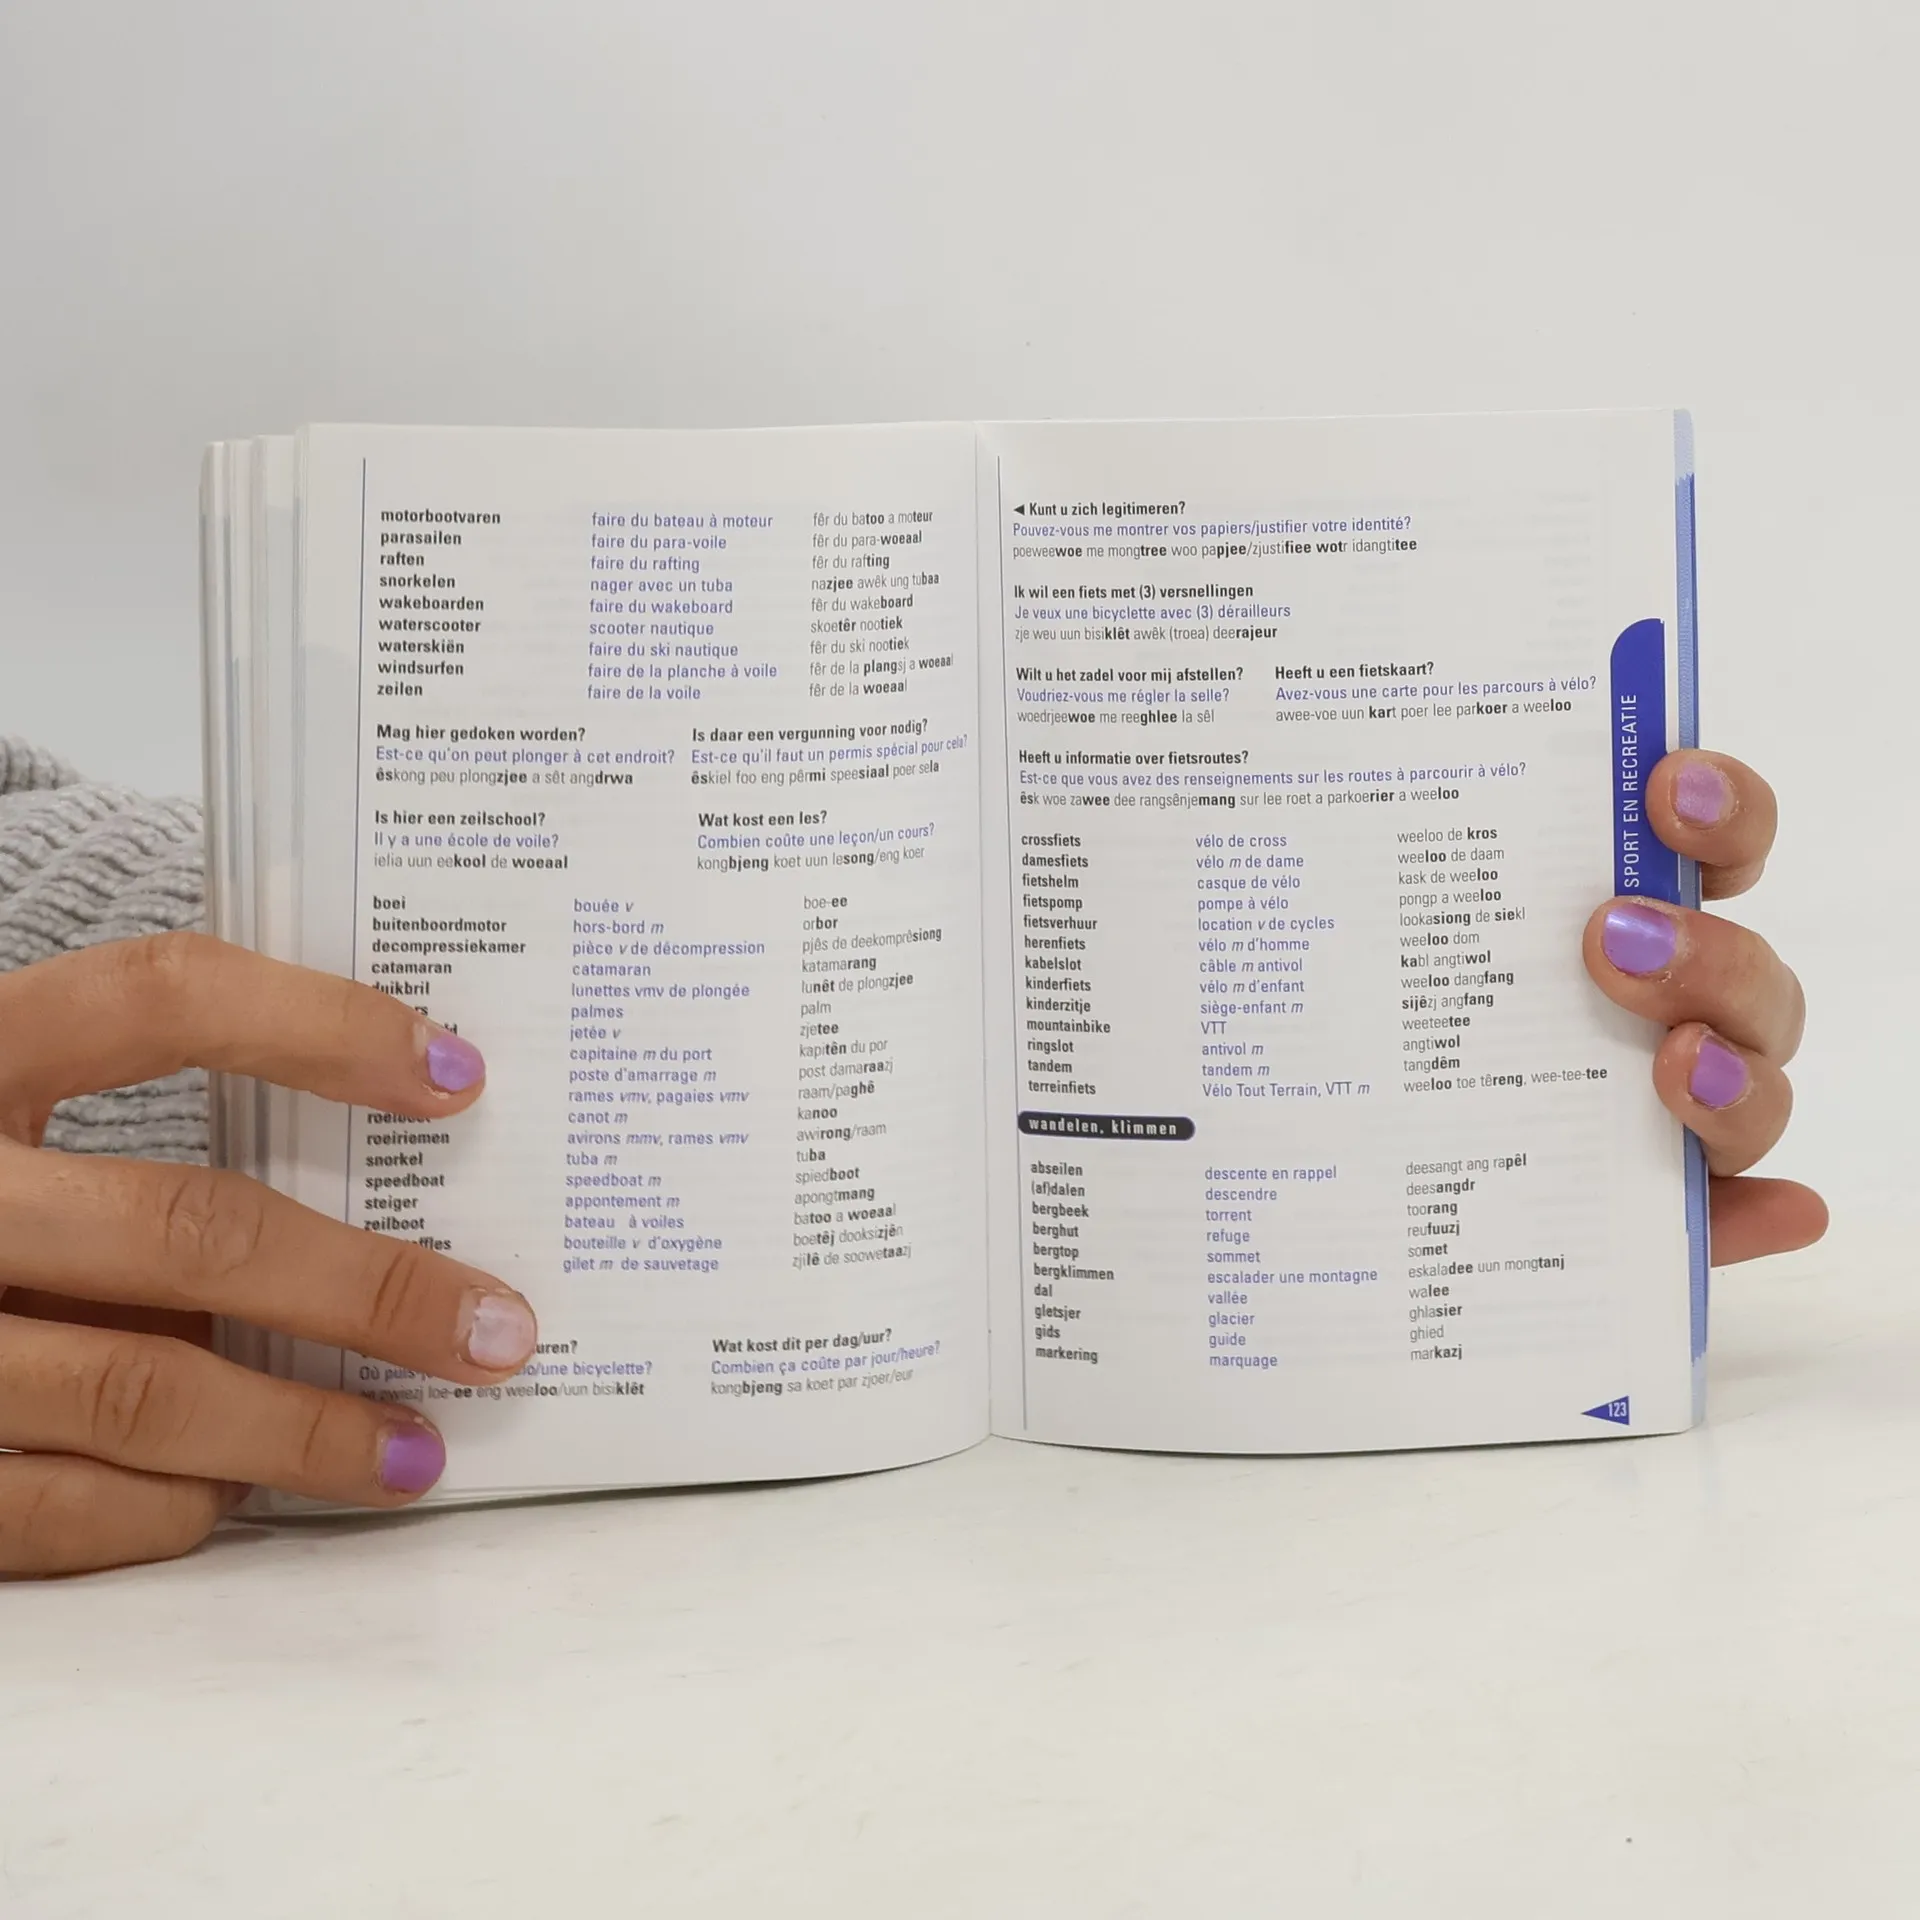 motorbootvaren faire du bateau à moteur fêr du batoo a moteur
parasailen faire du para-voile fêr du para-woeaal
raften faire du rafting fêr du rafting
snorkelen nager avec un tuba nazjee awêk ung tubaa
wakeboarden faire du wakeboard fêr du wakeboard
waterscooter scooter nautique skoetêr nootiek
waterskiën faire du ski nautique fêr du ski nootiek
windsurfen faire de la planche à voile fêr de la plangsj a woeaal
zeilen faire de la voile fêr de la woeaal
Mag hier gedoken worden? Is daar een vergunning voor nodig?
Est-ce qu'on peut plonger à cet endroit? Est-ce qu'il faut un permis spécial pour cela?
êskong peu plongzjee a sêt angdrwa êskiel foo eng pêrmi speesiaal poer sela
Is hier een zeilschool? Wat kost een les?
Il y a une école de voile? Combien coûte une leçon/un cours?
ielia uun eekool de woeaal kongbjeng koet uun lesong/eng koer
boei bouée v boe-ee
buitenboordmotor hors-bord m orbor
decompressiekamer pièce v de décompression pjês de deekomprêsiong
catamaran catamaran katamarang
duikbril lunettes vmv de plongée lunêt de plongzjee
palmes palm
jetée v zjetee
capitaine m du port kapitên du por
poste d'amarrage m post damaraazj
rames vmv, pagaies vmv raam/paghê
roeiboot canot m kanoo
roeiriemen avirons mmv, rames vmv awirong/raam
snorkel tuba m tuba
speedboat speedboat m spiedboot
steiger appontement m apongtmang
zeilboot bateau à voiles batoo a woeaal
bouteille v d'oxygène boetêj dooksizjên
gilet m de sauvetage zjilê de soowetaazj
uren? Wat kost dit per dag/uur?
Où puis-je /une bicyclette? Combien ça coûte par jour/heure?
loe-ee eng weeloo/uun bisiklêt kongbjeng sa koet par zjoer/eur
◄ Kunt u zich legitimeren?
Pouvez-vous me montrer vos papiers/justifier votre identité?
poeweewoe me mongtree woo papjee/zjustifiee wotr idangtitee
Ik wil een fiets met (3) versnellingen
Je veux une bicyclette avec (3) dérailleurs
zje weu uun bisiklêt awêk (troea) deerajeur
Wilt u het zadel voor mij afstellen? Heeft u een fietskaart?
Voudriez-vous me régler la selle? Avez-vous une carte pour les parcours à vélo?
woedrjeewoe me reeghlee la sêl awee-voe uun kart poer lee parkoer a weeloo
Heeft u informatie over fietsroutes?
Est-ce que vous avez des renseignements sur les routes à parcourir à vélo?
êsk woe zawee dee rangsênjemang sur lee roet a parkoerier a weeloo
crossfiets vélo de cross weeloo de kros
damesfiets vélo m de dame weeloo de daam
fietshelm casque de vélo kask de weeloo
fietspomp pompe à vélo pongp a weeloo
fietsverhuur location v de cycles lookasiong de siekl
herenfiets vélo m d'homme weeloo dom
kabelslot câble m antivol kabl angtiwol
kinderfiets vélo m d'enfant weeloo dangfang
kinderzitje siège-enfant m sijêzj angfang
mountainbike VTT weeteetee
ringslot antivol m angtiwol
tandem tandem m tangdêm
terreinfiets Vélo Tout Terrain, VTT m weeloo toe têreng, wee-tee-tee
wandelen, klimmen
abseilen descente en rappel deesangt ang rapêl
(af)dalen descendre deesangdr
bergbeek torrent toorang
berghut refuge reufuuzj
bergtop sommet somet
bergklimmen escalader une montagne eskaladee uun mongtanj
dal vallée walee
gletsjer glacier ghlasier
gids guide ghied
markering marquage markazj
SPORT EN RECREATIE
123